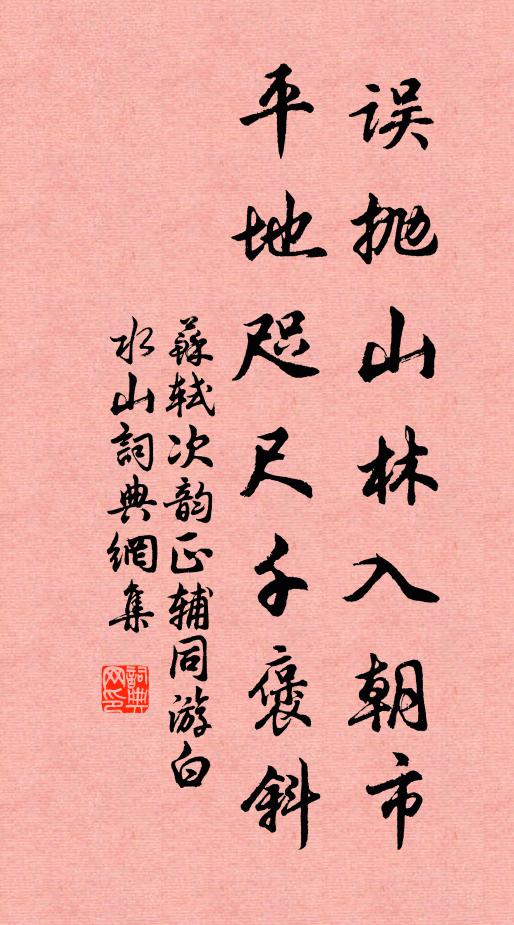 误抛山林入朝市
平地咫尺千褒斜
蘇軾次韵正辅同游白
水山詞典網集
詞典
网印